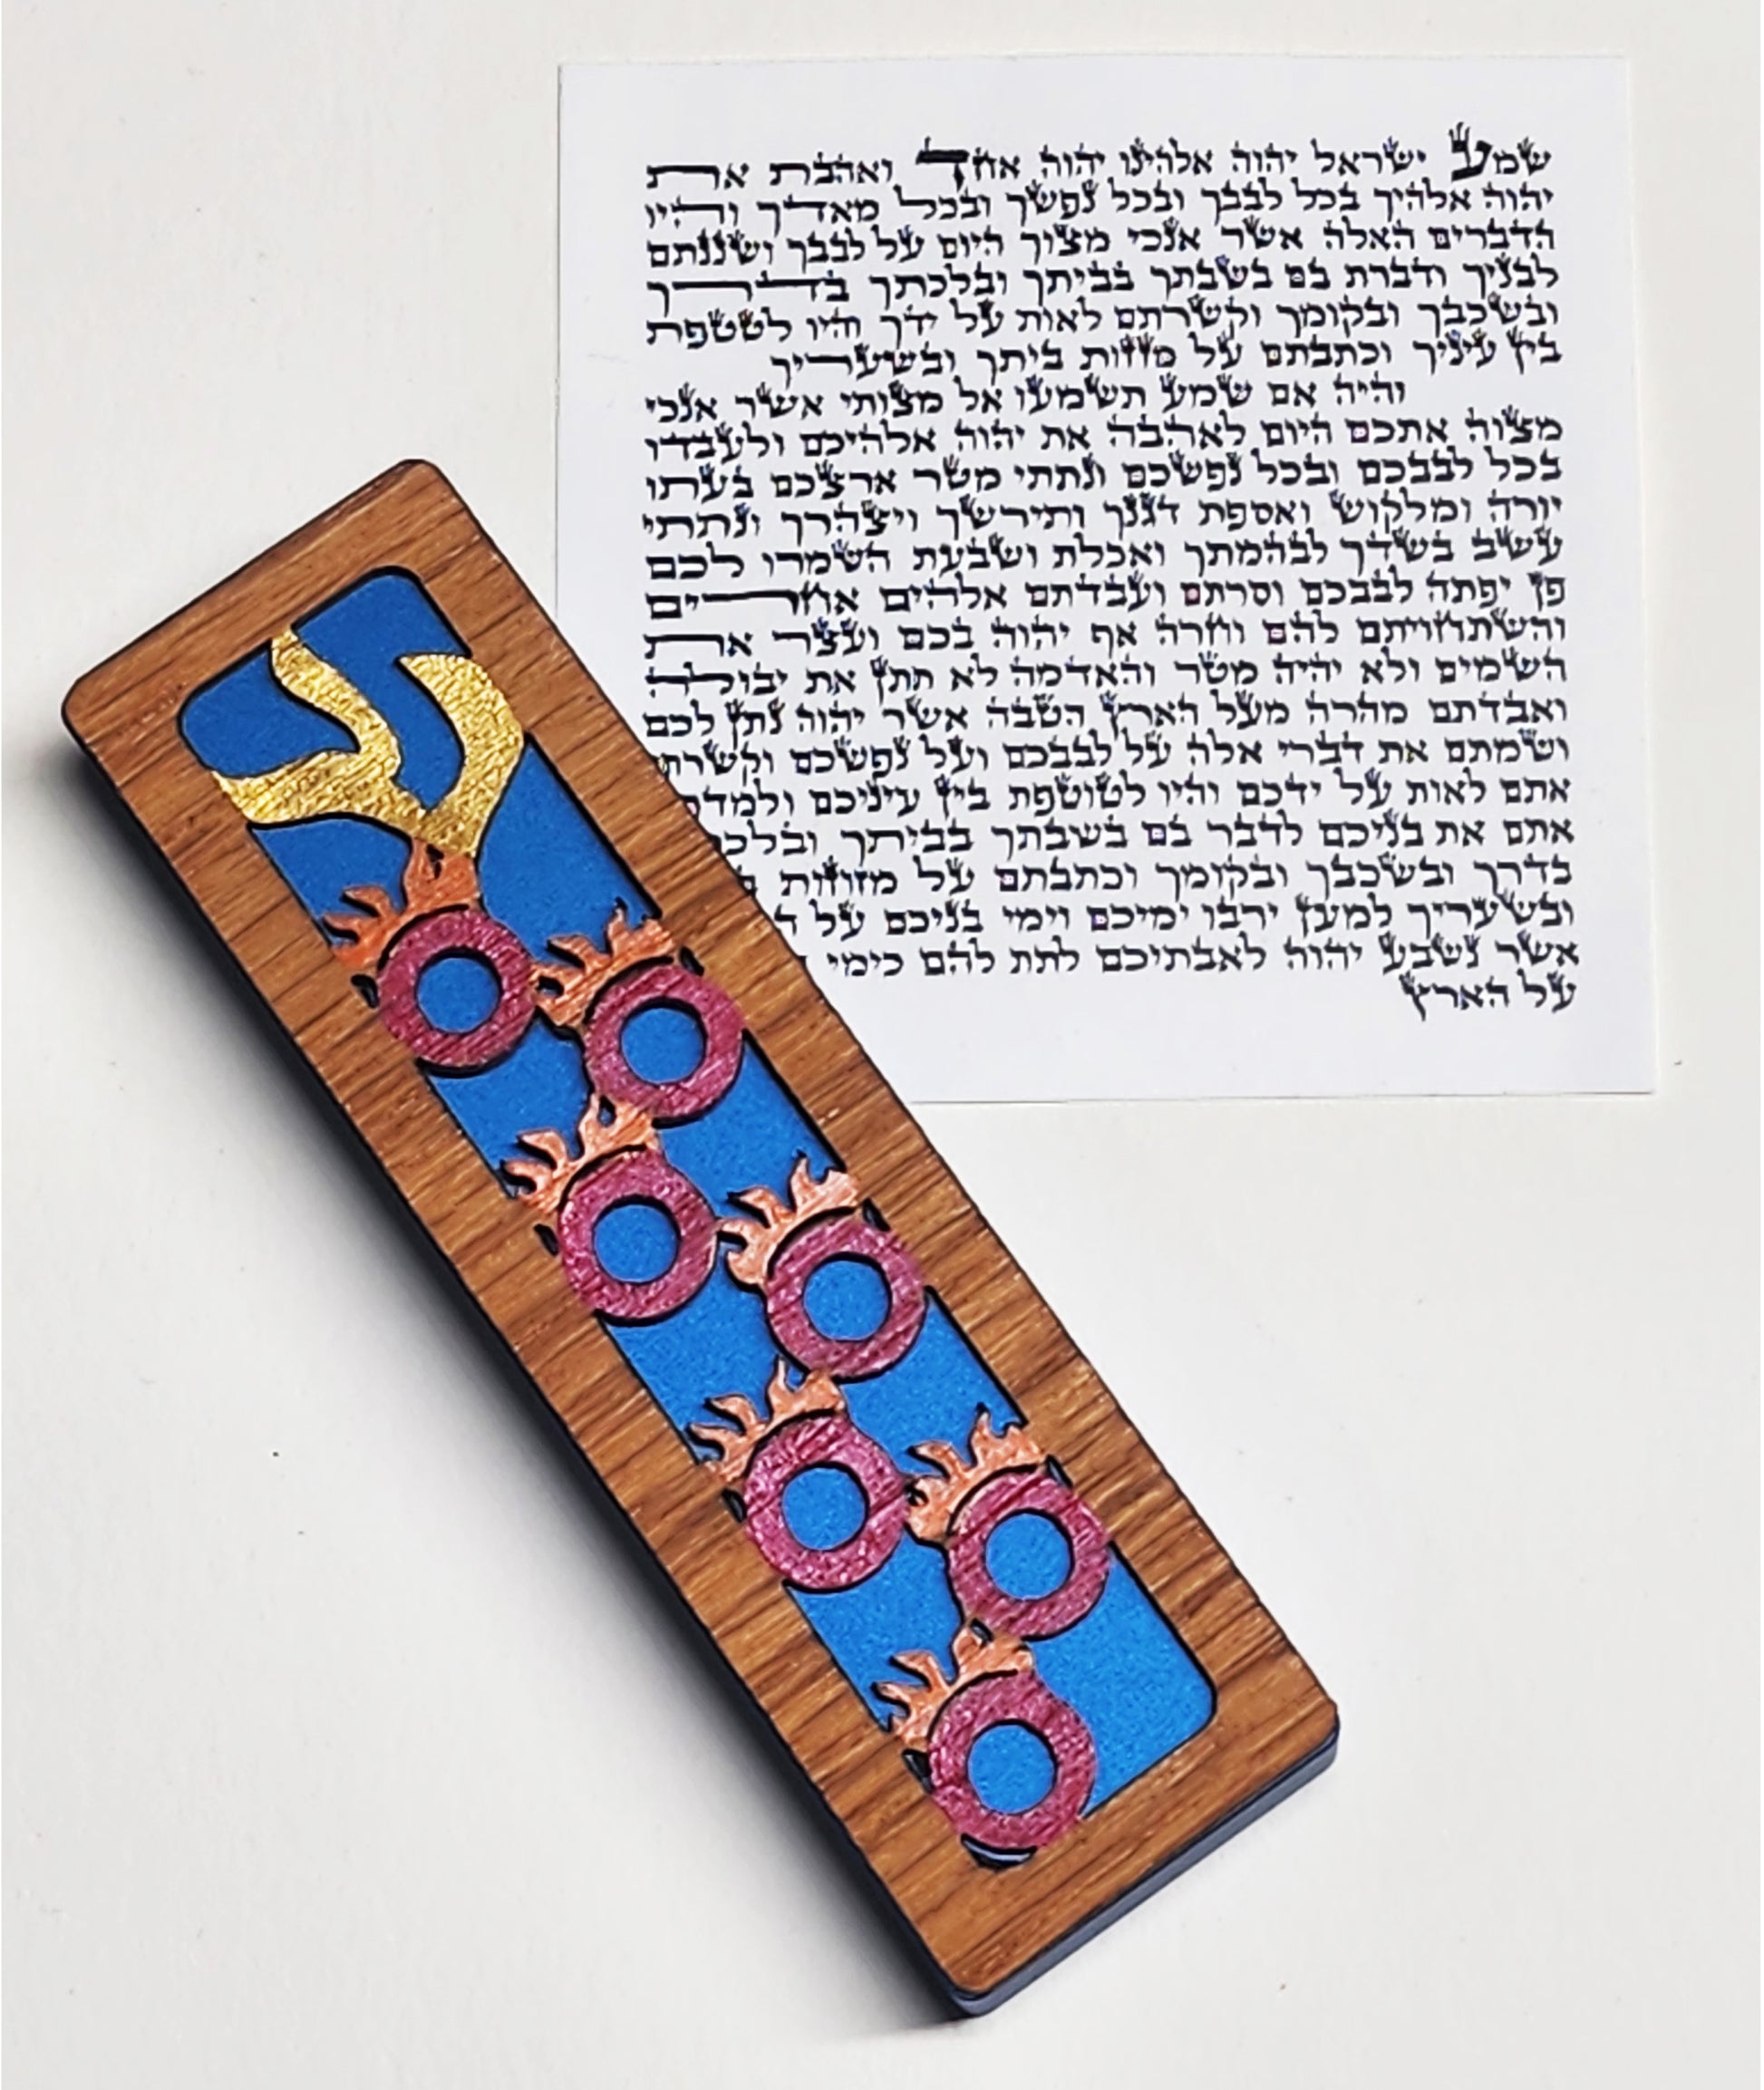 שמע ישראל יהוה אלהינו יהוה אחד ואהבת את
יהוה אלהיך בכל לבבך ובכל נפשך ובכל מאדך והיו
הדברים האלה אשר אנכי מצוך היום על לבבך ושננתם
לבניך ודברת בם בשבתך בביתך ובלכתך בדרך
ובשכבך ובקומך וקשרתם לאות על ידך והיו לטטפת
בין עיניך וכתבתם על מזזות ביתך ובשעריך
והיה אם שמע תשמעו אל מצותי אשר אנכי
מצוה אתכם היום לאהבה את יהוה אלהיכם ולעבדו
בכל לבבכם ובכל נפשכם ונתתי מטר ארצכם בעתו
יורה ומלקוש ואספת דגנך ותירשך ויצהרך ונתתי
עשב בשדך לבהמתך ואכלת ושבעת השמרו לכם
פן יפתה לבבכם וסרתם ועבדתם אלהים אחרים
והשתחויתם להם וחרה אף יהוה בכם ועצר את
השמים ולא יהיה מטר והאדמה לא תתן את יבולה
ואבדתם מהרה מעל הארץ הטבה אשר יהוה נתן לכם
ושמתם את דברי אלה על לבבכם ועל נפשכם
אתם לאות על ידכם והיו לטוטפת בין עיניכם
אתם את בניכם לדבר בם בשבתך בביתך
בדרך ובשכבך ובקומך וכתבתם על מזוזות
ובשעריך למען ירבו ימיכם וימי בניכם על
אשר נשבע יהוה לאבתיכם לתת להם כימי
על הארץ
ש